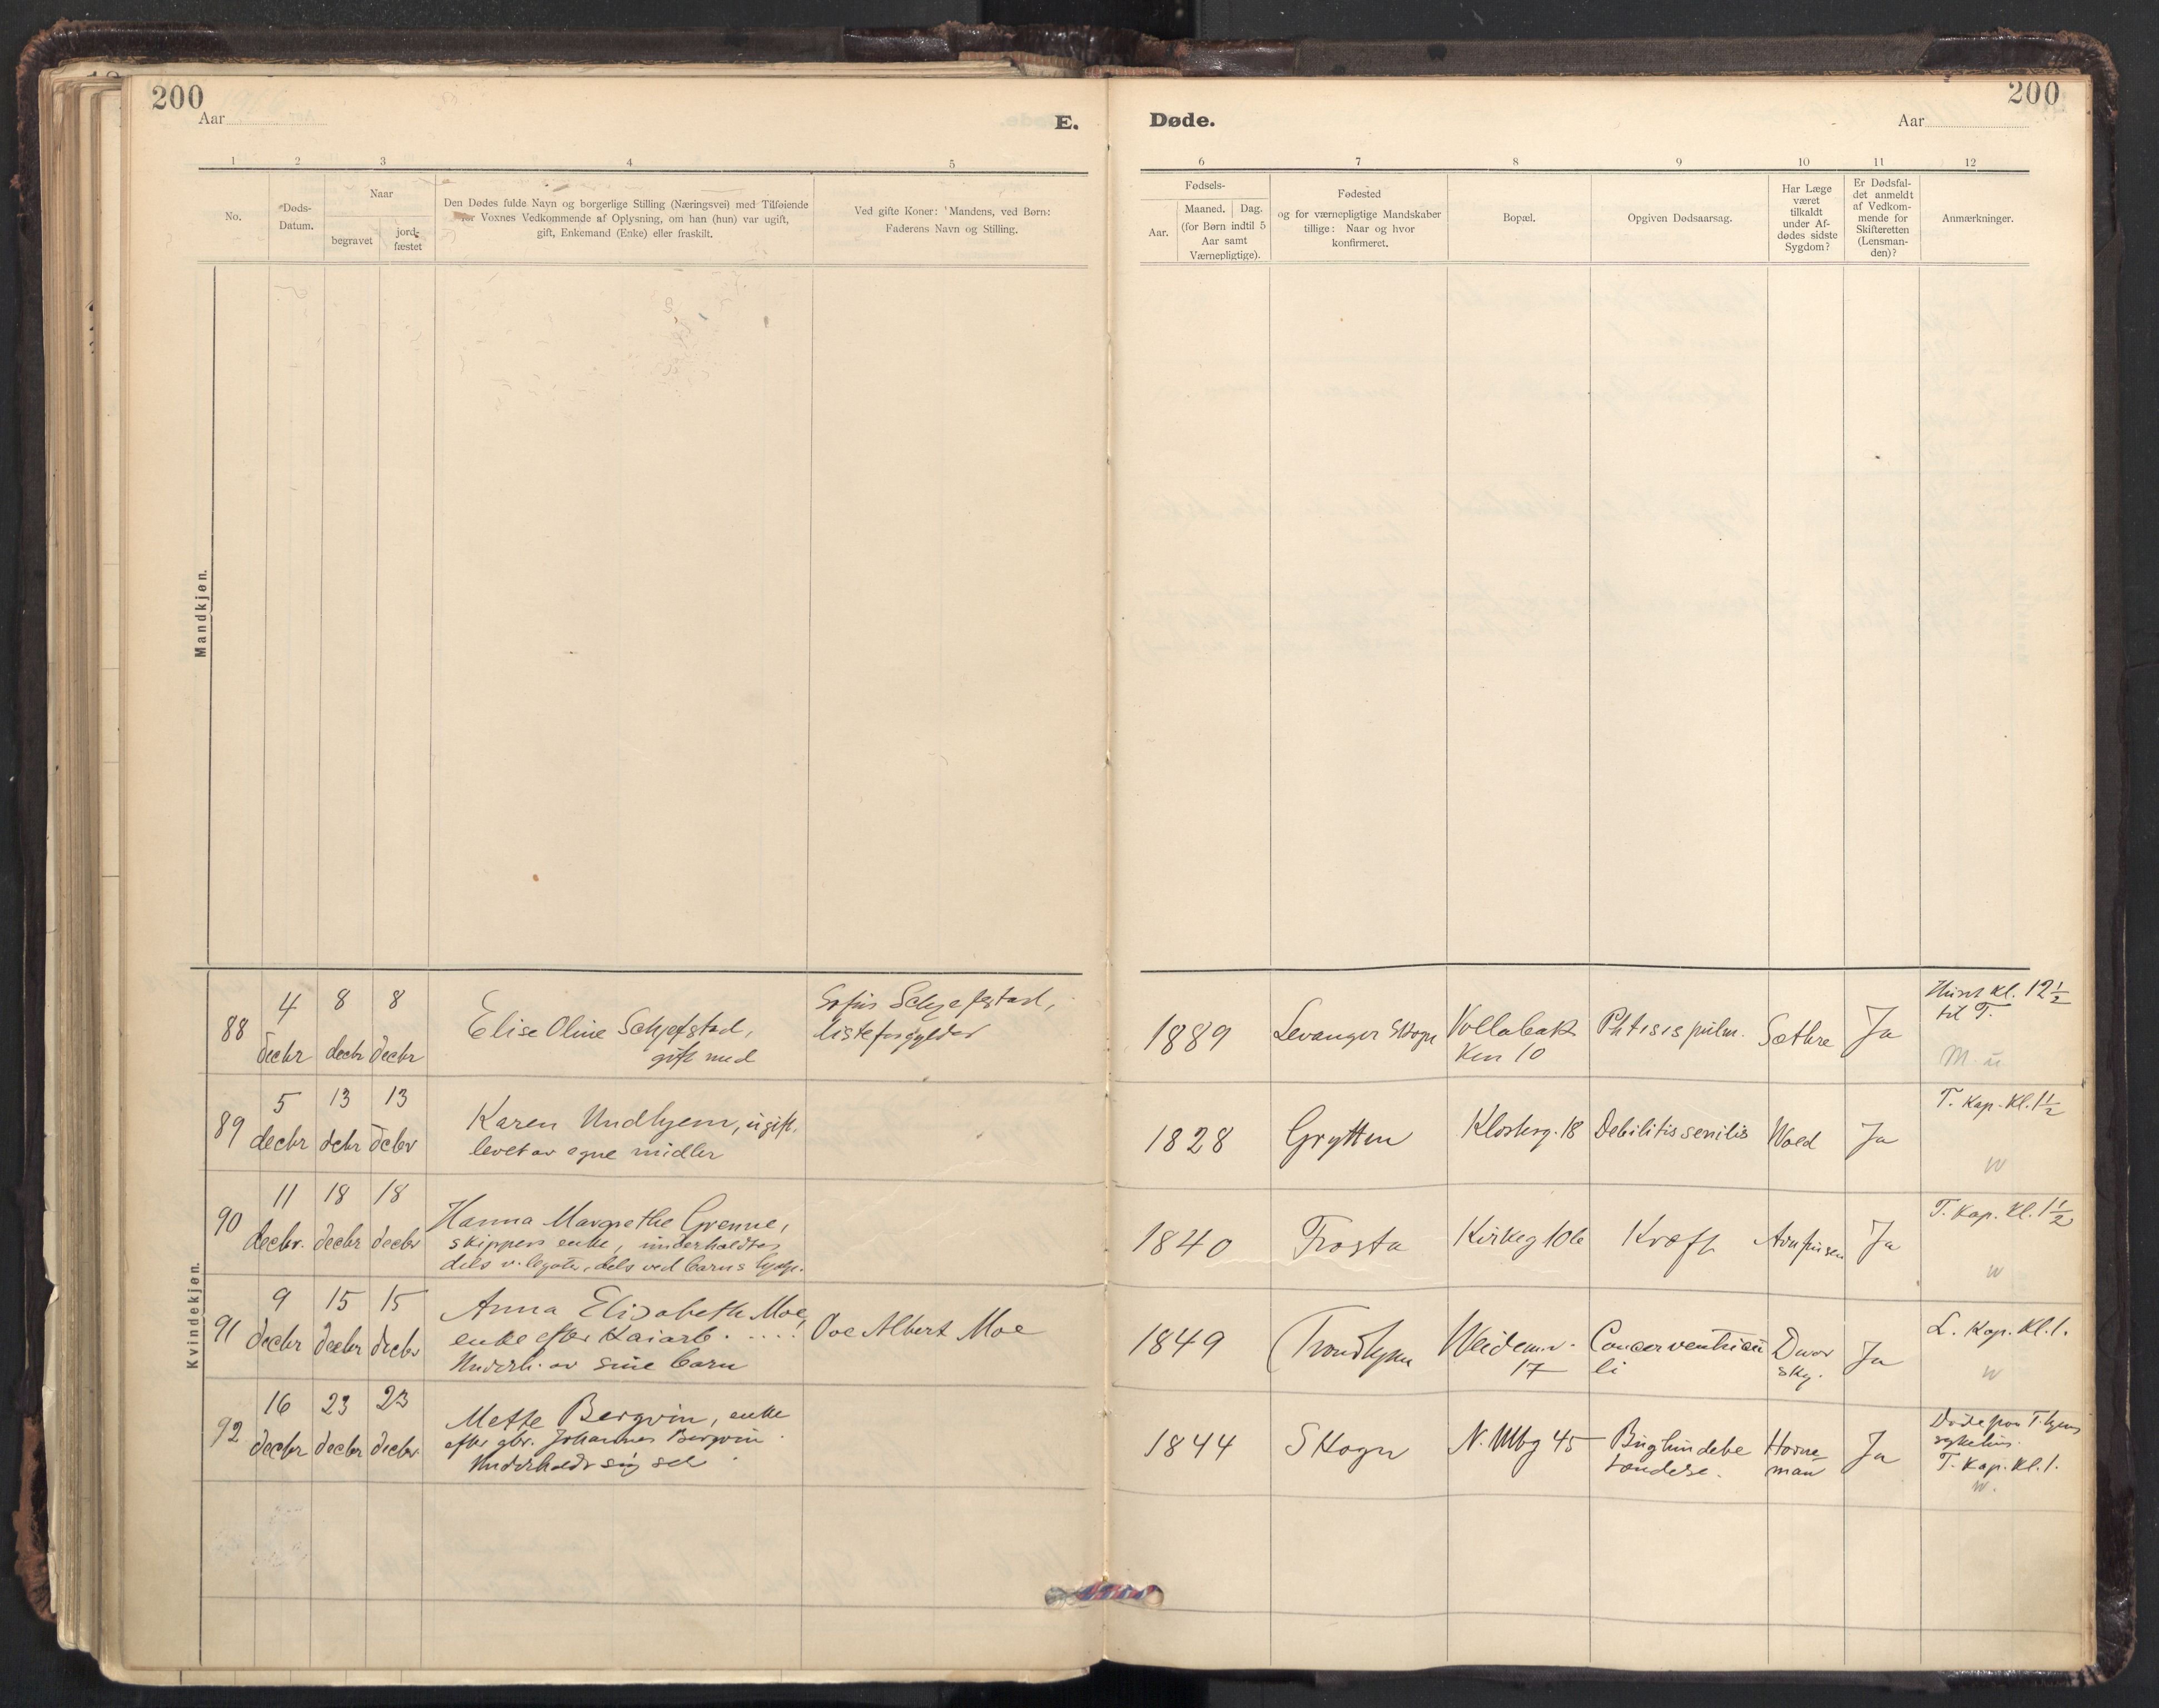 200
200
Aar
E.
Døde.
Aar
1 2 3 4 5 6 7 8 9 10 11 12
No.
Døds-
Datum.
Naar
begravet
jord-
fæstet
Den Dødes fulde Navn og borgerlige Stilling (Næringsvei) med Tilføiende
for Voxnes Vedkommende af Oplysning, om han (hun) var ugift,
gift, Enkemand (Enke) eller fraskilt.
Ved gifte Koner: Mandens, ved Børn:
Faderens Navn og Stilling.
Fødsels-
Aar.
Maaned. Dag.
(for Børn indtil 5
Aar samt
Værnepligtige).
Fødested
og for værnepligtige Mandskaber
tillige: Naar og hvor
konfirmeret.
Bopæl.
Opgiven Dødsaarsag.
Har Læge
været
tilkaldt
under Af-
dødes sidste
Sygdom?
Er Dødsfal-
det anmeldt
af Vedkom-
mende for
Skifteretten
(Lensman-
den)?
Anmærkninger.
Mandkjøn.
Kvindekjøn.
88
4 8 8
decbr decbr decbr
Elise Oline Schjefstad,
gift med
Schjefstad,
listeforgylder
1889
Levanger Skogn
Vollabak
ken 10
Phtisis pulm.
Sæthre
Ja
Huset kl. 12½
til T.
M. u
89
5 13 13
decbr dcbr dcbr
Karen Undhjem, ugift,
levet av egne midler
1828
Grytten
Klosterg. 18
Debilitis senilis
Wold
Ja
T. Kap. Kl. 1½
w
90
11 18 18
decbr. decbr decbr
Hanna Margrethe Grenne,
skippers enke, underholdtes
dels v. legater, dels ved barns hjelp.
1840
Frosta
Kirkeg 10b
Kræft
Ja
T. Kap. Kl. 1½
w
91
9 15 15
decbr decbr decbr
Anna Elisabeth Moe,
enke efter Kaiarb. ....!
Underh. av sine barn
Ove Albert Moe
1849
Trondhjem
Weidem.v.
17
li
sky.
Ja
L. Kap. Kl. 1.
w
92
16 23 23
decbr decbr decbr
Mette Bergvin, enke
efter gbr. Johannes Bergvin.
Underholdt sig selv.
1844
Skogn
N. Mbg 45
Bughindebe
tændelse.
Horne-
man
Ja
Døde paa T.hjems
sykehus.
T. Kap. Kl. 1.
w.